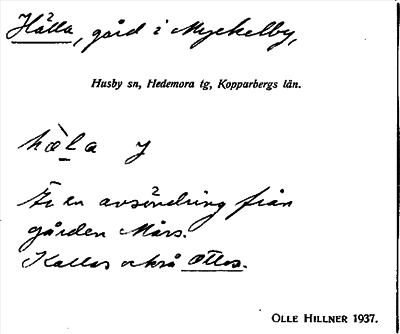 Hålla, gård i Myckelby,
Husby sn, Hedemora tg, Kopparbergs län.
hòla y
Är en avsöndring från
gården Mårs.
Kallas också Ollos.
OLLE HILLNER 1937.